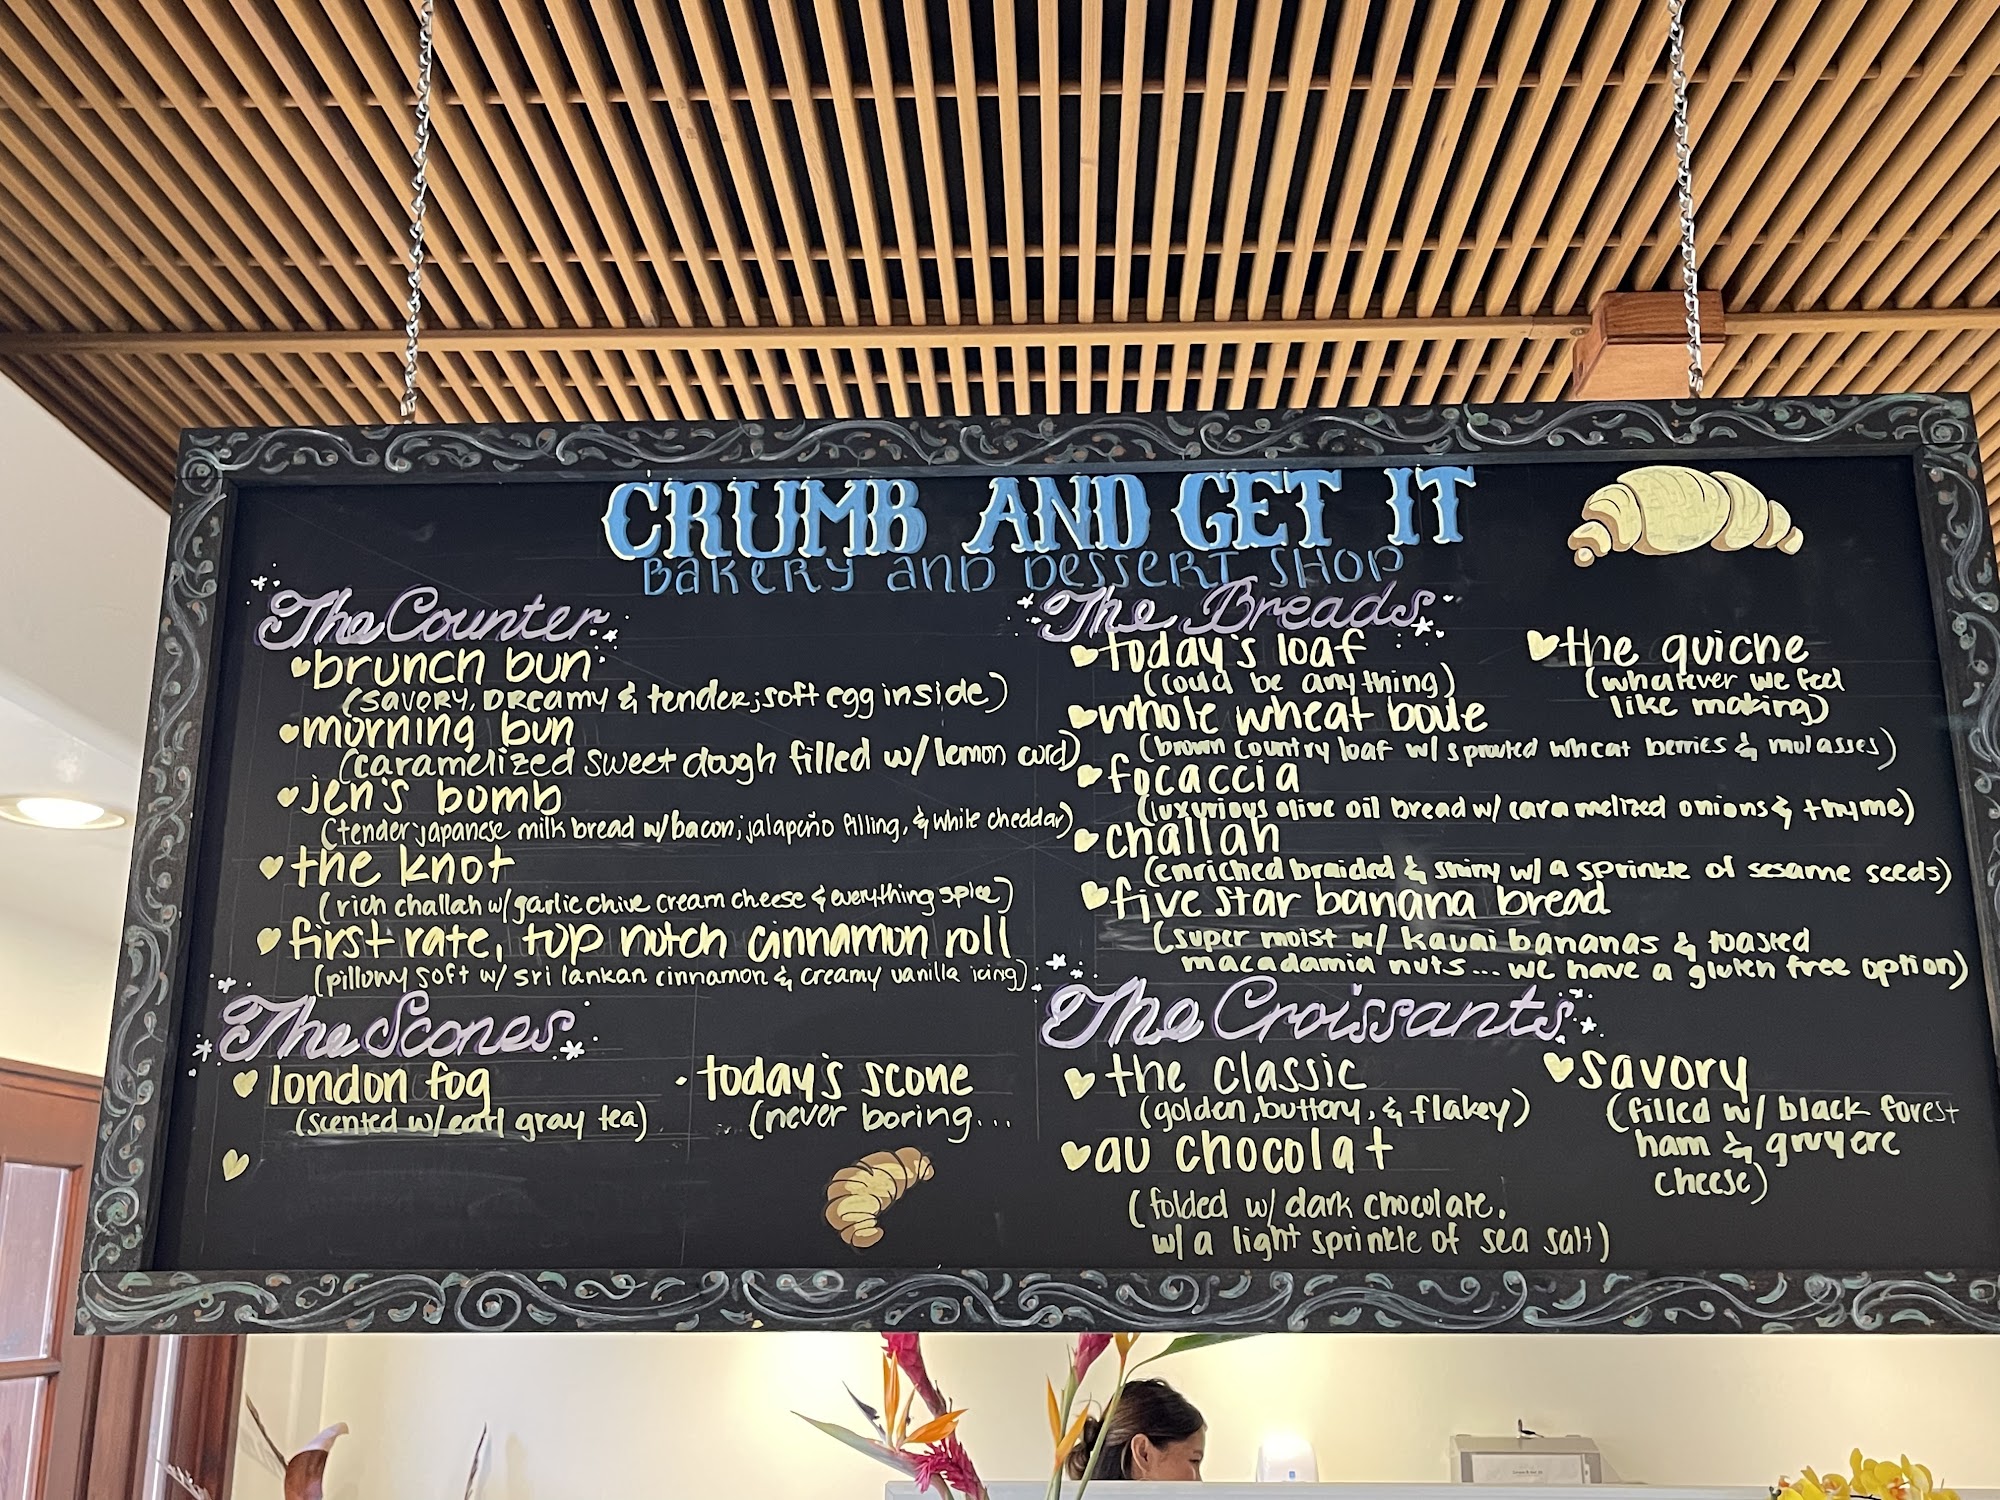 CRUMB AND GET IT
BAKERY AND DESSERT SHOP
The Counter
brunch bun
(savory, dreamy & tender; soft egg inside)
morning bun
(caramelized sweet dough filled w/ lemon curd)
jen's bomb
(tender japanese milk bread w/ bacon, jalapeño filling, & white cheddar)
the knot
(rich challah w/ garlic chive cream cheese & everything spice)
first rate, top notch cinnamon roll
(pillowy soft w/ sri lankan cinnamon & creamy vanilla icing)
The Scones
london fog
(scented w/ earl gray tea)
today's scone
(never boring...
The Breads
today's loaf
(could be anything)
whole wheat boule
(brown country loaf w/ sprouted wheat berries & molasses)
focaccia
(luxurious olive oil bread w/ caramelized onions & thyme)
challah
(enriched braided & shiny w/ a sprinkle of sesame seeds)
five star banana bread
(super moist w/ kauai bananas & toasted
macadamia nuts... we have a gluten free option)
the quiche
(whatever we feel
like making)
The Croissants
the classic
(golden, buttery, & flakey)
au chocolat
(folded w/ dark chocolate,
w/ a light sprinkle of sea salt)
savory
(filled w/ black forest
ham & gruyere
cheese)